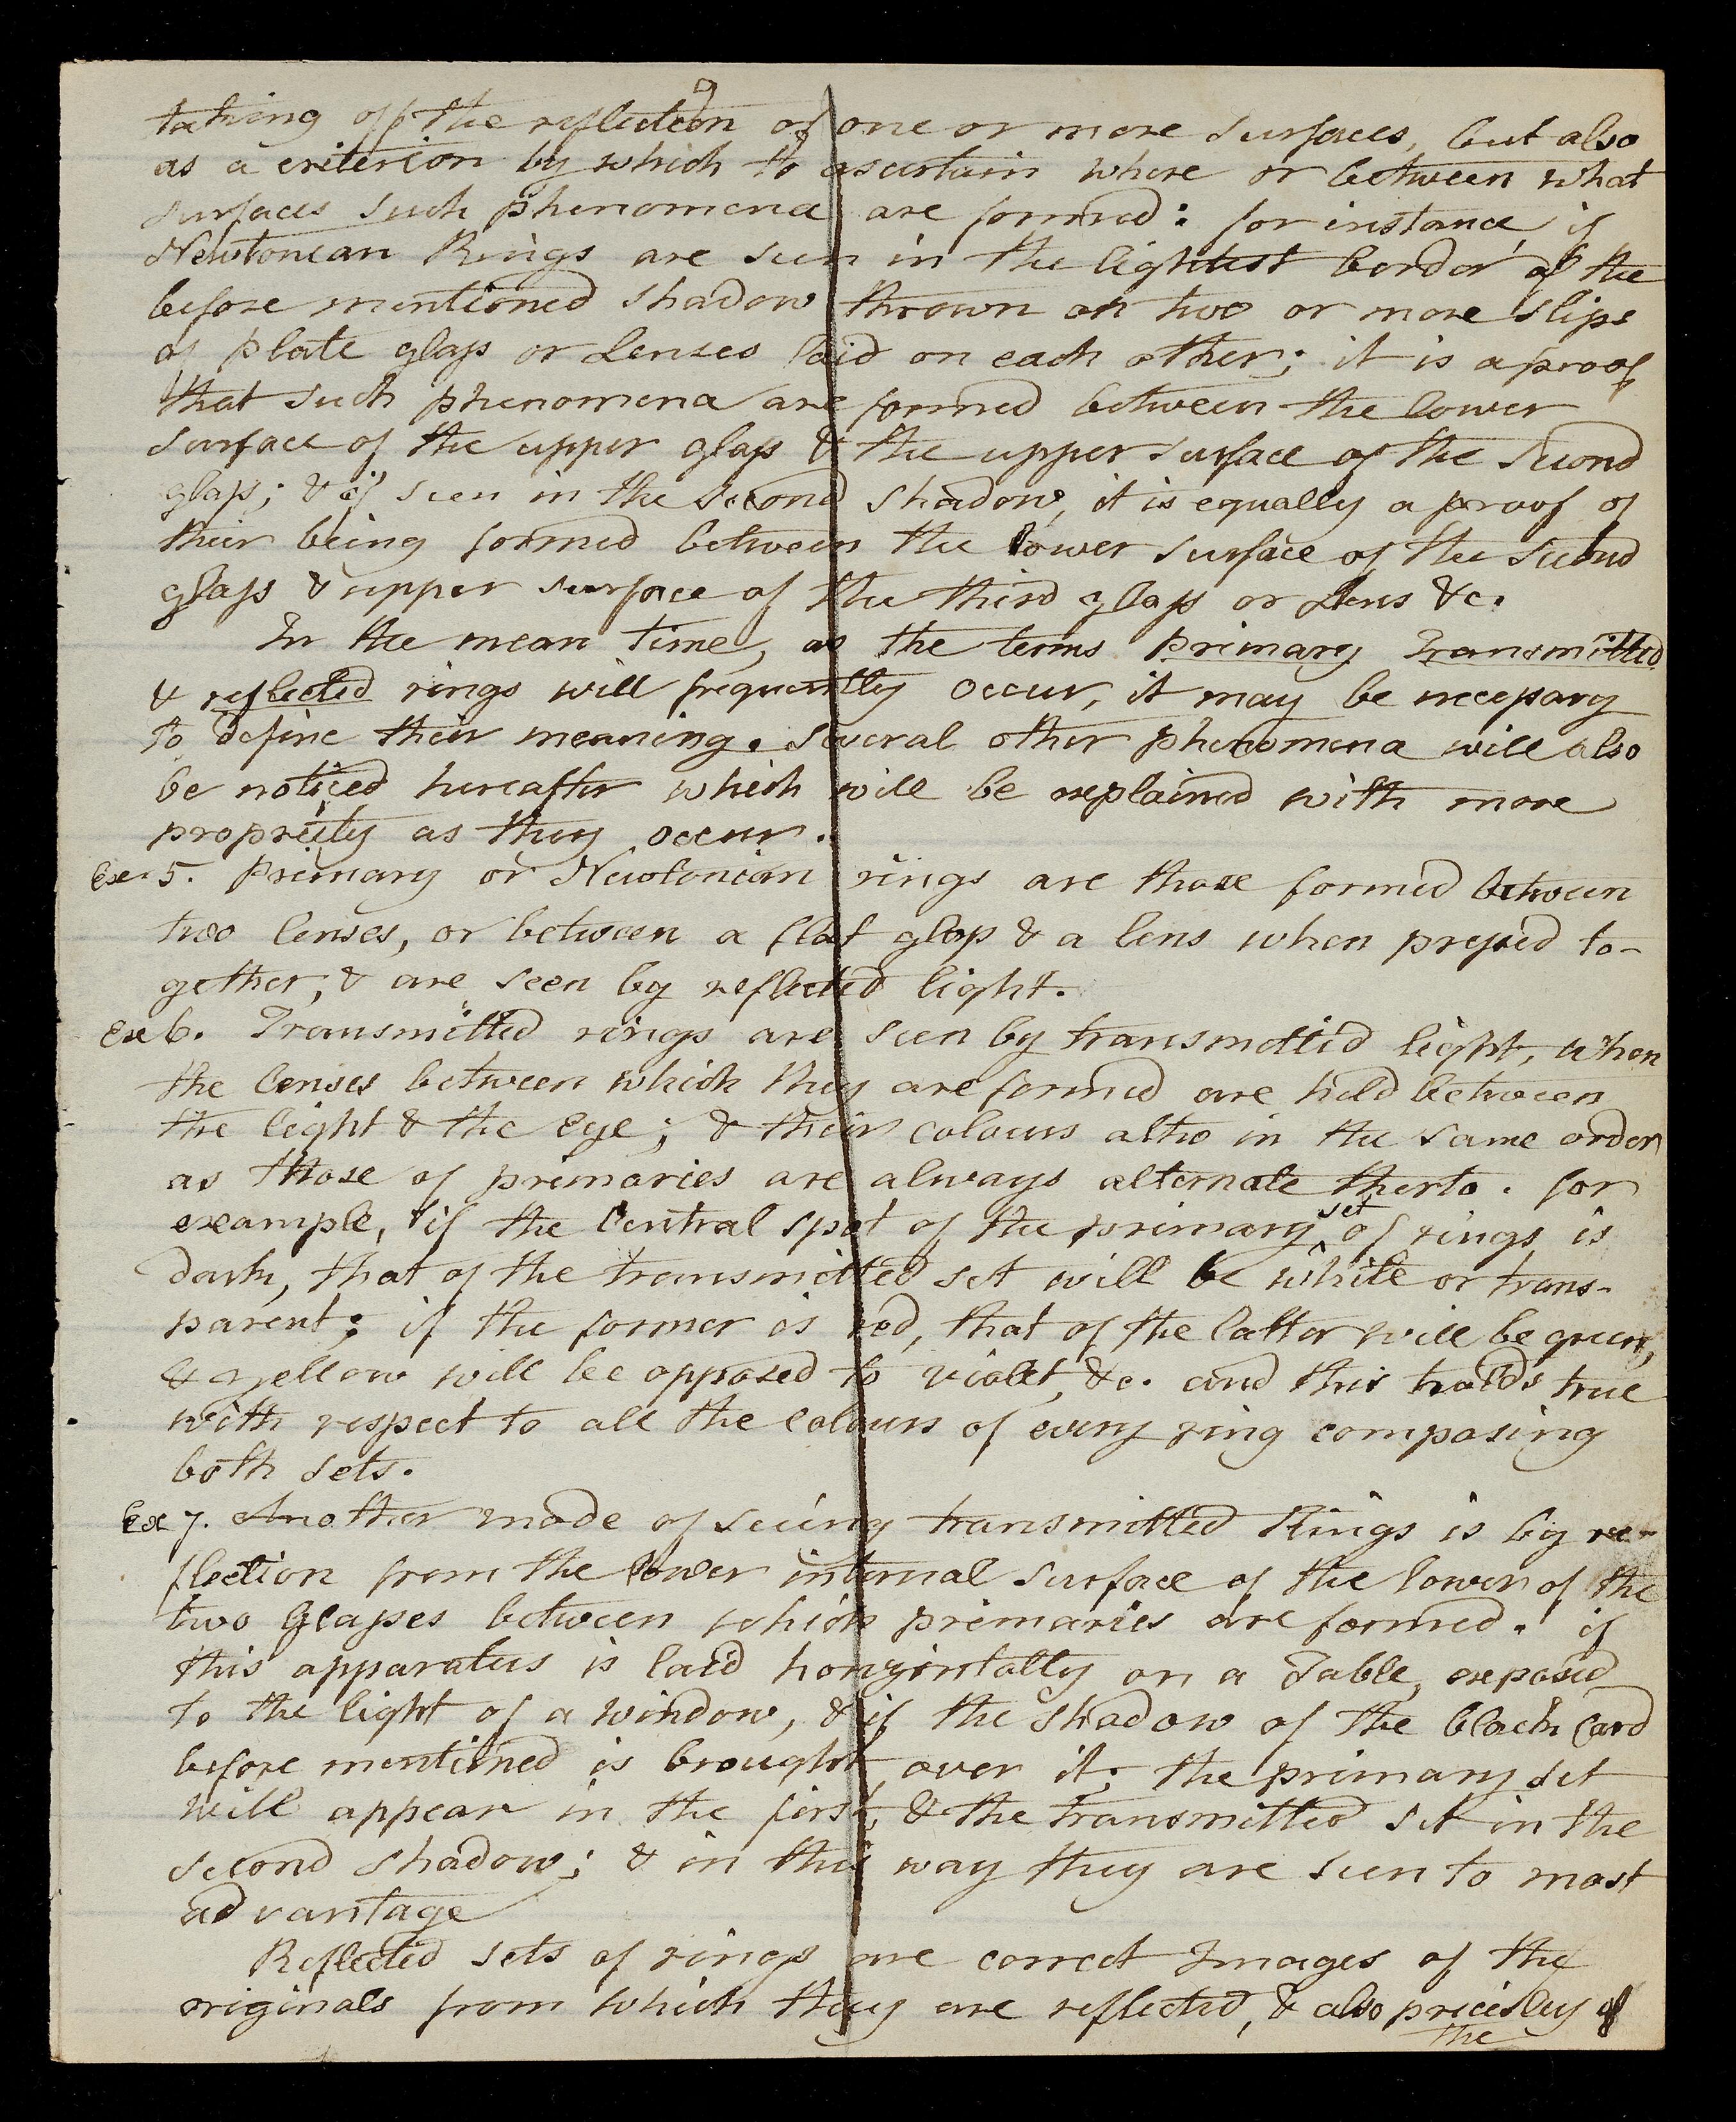 9
taking off the reflection of one or more surfaces, but also
as a criterion by which to ascertain where or between what
surfaces such phenomena are formed: for instance if
Newtonian Rings are seen in the lightest border of the
before mentioned shadow thrown on two or more slips
of plate glass or Lenses laid on each other; it is a proof
that such phenomena are formed between the lower
surface of the upper glass & the upper surface of the second
glass; & if seen in the second shadow, it is equally a proof of
their being formed between the lower surface of the second
glass & upper surface of the third glass or Lens &c.
In the mean time, as the terms primary Transmitted
& reflected rings will frequently occur, it may be necessary
to define their meaning. Several other phenomena will also
be noticed hereafter which will be explained with more
propriety as they occur.
Ex. 5. Primary or Newtonian rings are those formed between
two lenses, or between a flat glass & a lens when pressed to-
gether, & are seen by reflected light.
Ex 6. Transmitted rings are seen by transmitted light, when
the lenses between which they are formed are held between
the light & the eye; & their colours altho in the same order
as those of primaries are always alternate therto. for
example, if the Central spot of the primary set of rings is
dark, that of the transmitted set will be white or trans-
parent; if the former is red, that of the latter will be green,
& yellow will be opposed to violet, &c. and this holds true
with respect to all the colours of every ring composing
both sets.
Ex 7. Another mode of seeing transmitted Rings is by re-
flection from the lower internal surface of the lower of the
two Glasses between which primaries are formed. if
this apparatus is laid horizintally on a Table, exposed
to the light of a window, & if the shadow of the black Card
before mentioned is brought over it; the primary set
will appear in the first, & the transmitted set in the
second shadow; & in this way they are seen to most
advantage
Reflected sets of rings are correct Images of the
originals from which they are reflected, & also pricisley of
the